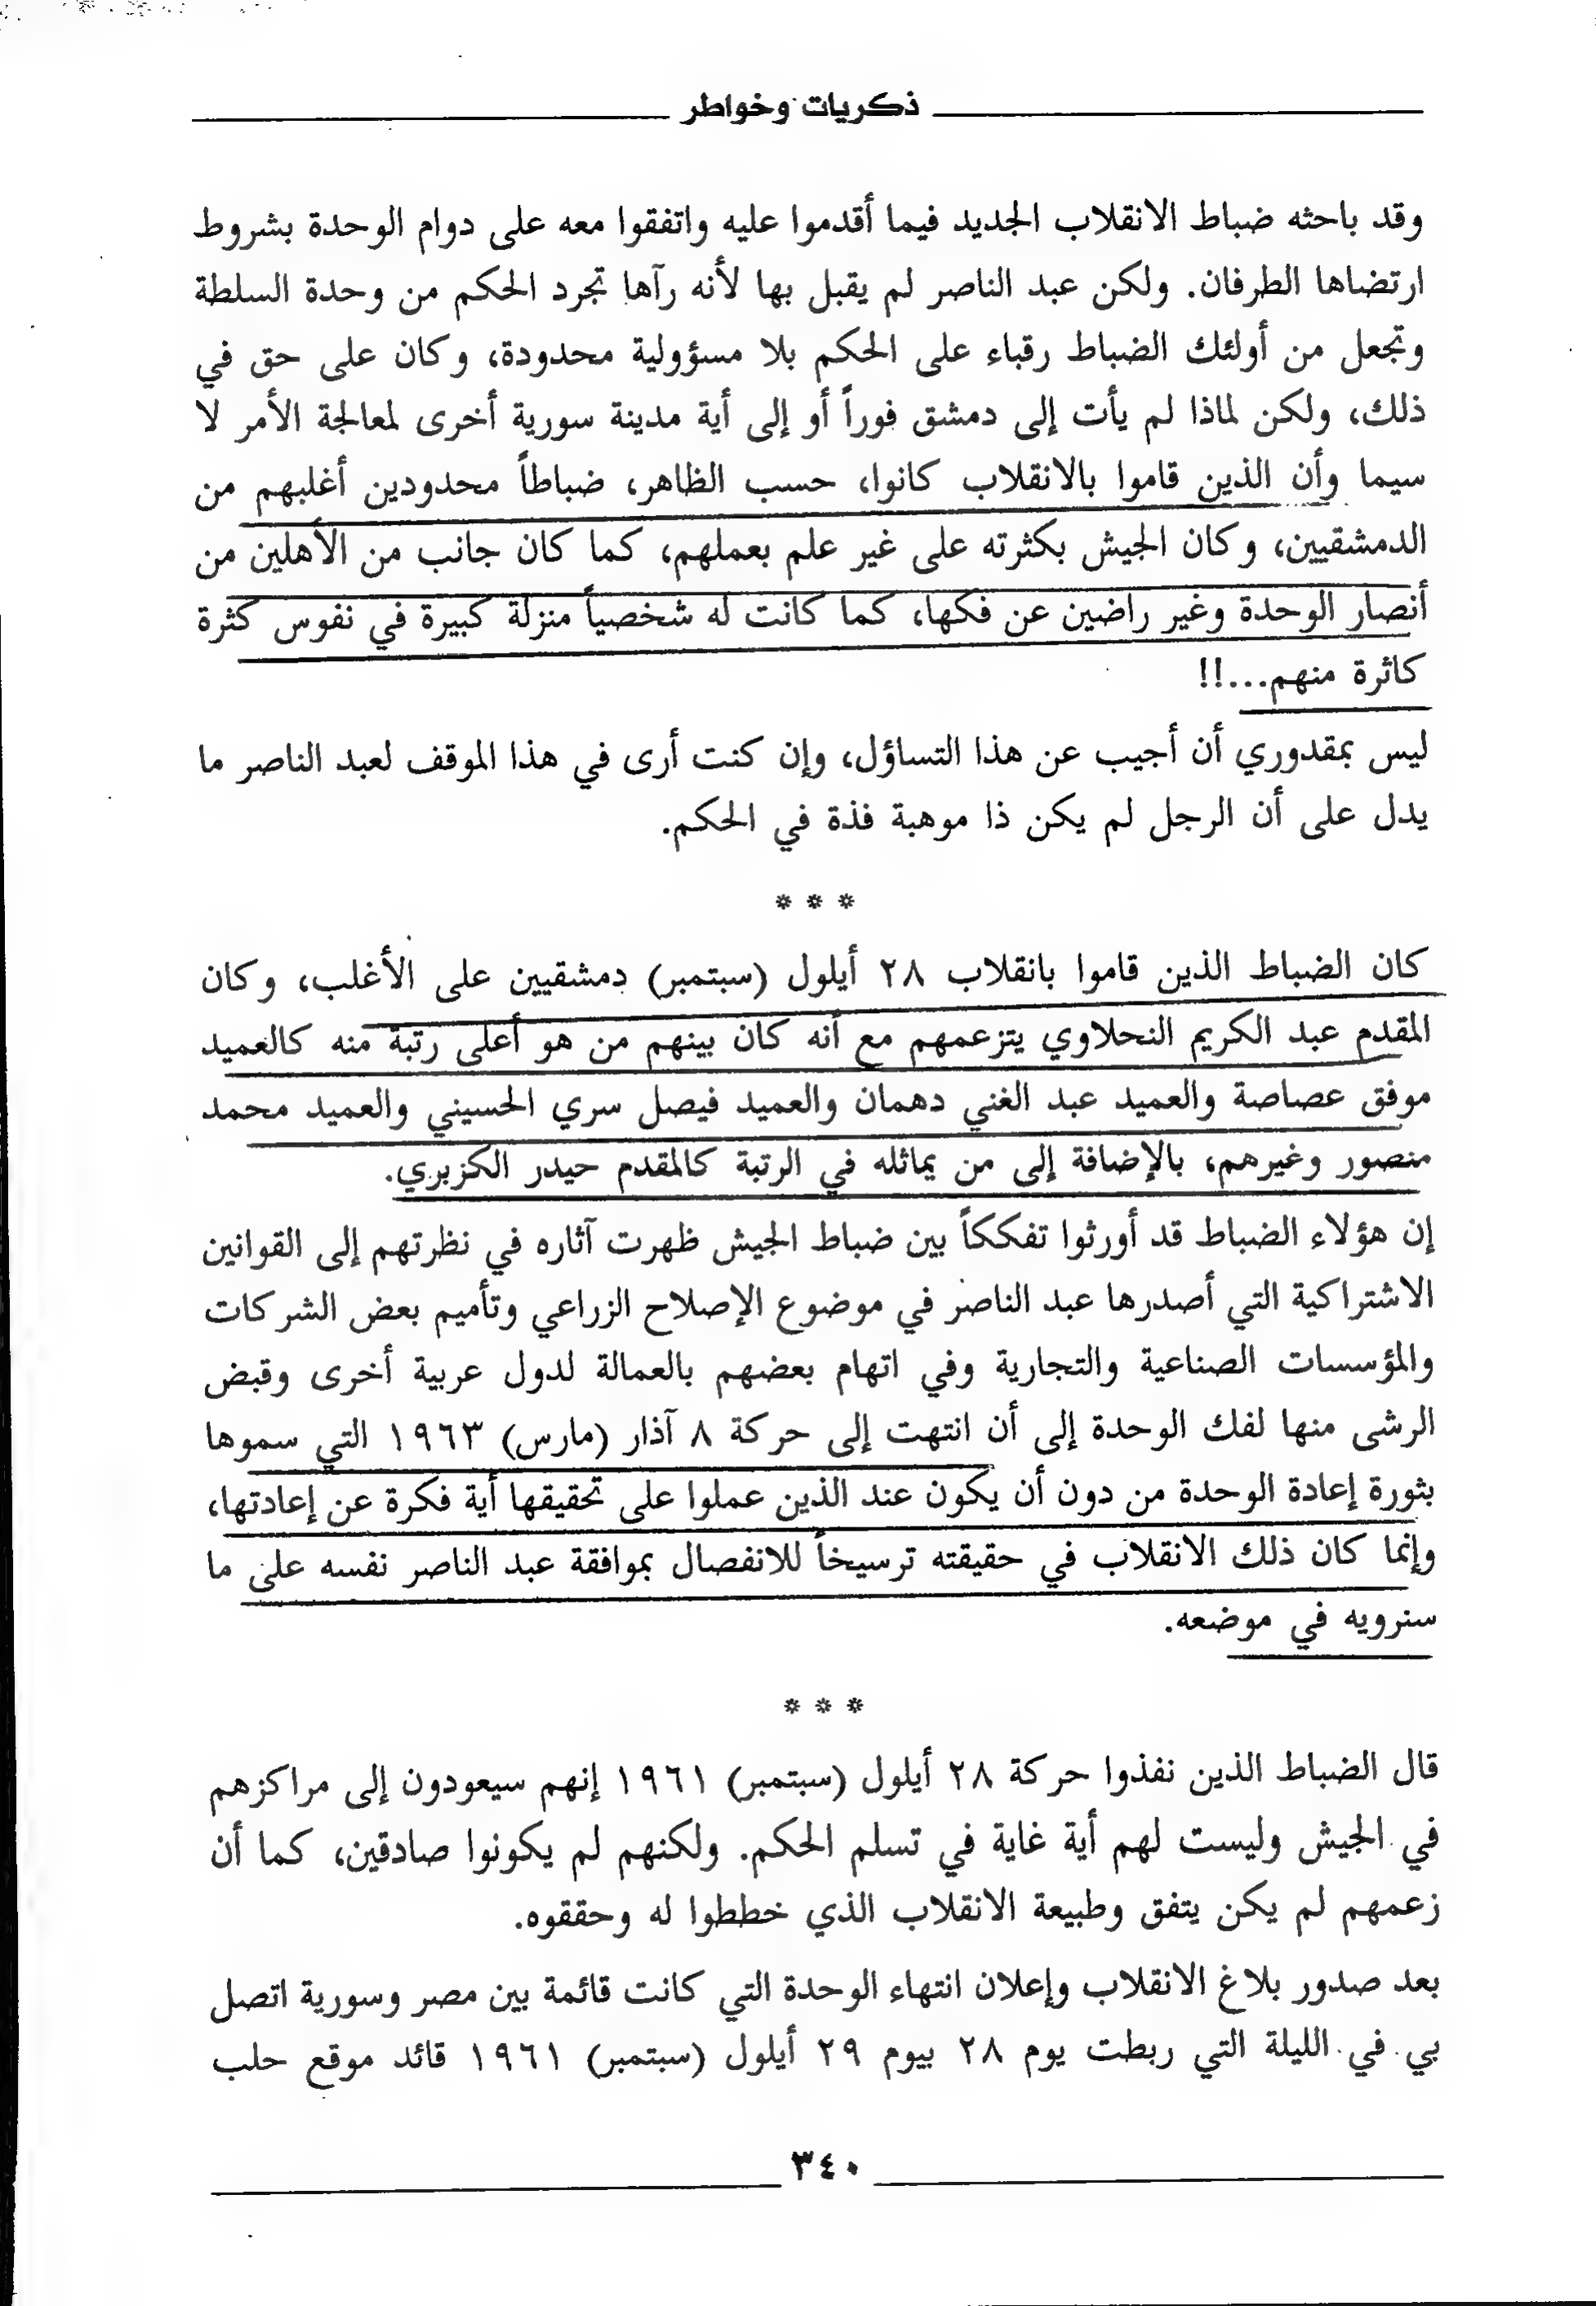 ذكريات وخواطر
وقد باحثه ضباط الانقلاب الجديد فيما أقدموا عليه واتفقوا معه على دوام الوحدة بشروط
ارتضاها الطرفان. ولكن عبد الناصر لم يقبل بها لأنه رآها تجرد الحكم من وحدة السلطة
وتجعل من أولئك الضباط رقباء على الحكم بلا مسؤولية محدودة، وكان على حق في
ذلك، ولكن لماذا لم يأت إلى دمشق فوراً أو إلى أية مدينة سورية أخرى لمعالجة الأمر لا
سيما وأن الذين قاموا بالانقلاب كانوا، حسب الظاهر، ضباطاً محدودين أغلبهم من
الدمشقيين، وكان الجيش بكثرته على غير علم بعملهم، كما كان جانب من الأهلين من
أنصار الوحدة وغير راضين عن فكها، كما كانت له شخصياً منزلة كبيرة في نفوس كثرة
كاثرة منهم...!!
ليس بمقدوري أن أجيب عن هذا التساؤل، وإن كنت أرى في هذا الموقف لعبد الناصر ما
يدل على أن الرجل لم يكن ذا موهبة فذة في الحكم.
* * *
كان الضباط الذين قاموا بانقلاب ٢٨ أيلول (سبتمبر) دمشقيين على الأغلب، وكان
المقدم عبد الكريم النحلاوي يتزعمهم مع أنه كان بينهم من هو أعلى رتبة منه كالعميد
موفق عصاصة والعميد عبد الغني دهمان والعميد فيصل سري الحسيني والعميد محمد
منصور وغيرهم، بالإضافة إلى من يماثله في الرتبة كالمقدم حيدر الكزبري.
إن هؤلاء الضباط قد أورثوا تفككاً بين ضباط الجيش ظهرت آثاره في نظرتهم إلى القوانين
الاشتراكية التي أصدرها عبد الناصر في موضوع الإصلاح الزراعي وتأميم بعض الشركات
والمؤسسات الصناعية والتجارية وفي اتهام بعضهم بالعمالة لدول عربية أخرى وقبض
الرشى منها لفك الوحدة إلى أن انتهت إلى حركة ٨ آذار (مارس) ١٩٦٣ التي سموها
بثورة إعادة الوحدة من دون أن يكون عند الذين عملوا على تحقيقها أية فكرة عن إعادتها،
وإنما كان ذلك الانقلاب في حقيقته ترسيخاً للانفصال بموافقة عبد الناصر نفسه على ما
سنرويه في موضعه.
* * *
قال الضباط الذين نفذوا حركة ٢٨ أيلول (سبتمبر) ١٩٦١ إنهم سيعودون إلى مراكزهم
في الجيش وليست لهم أية غاية في تسلم الحكم. ولكنهم لم يكونوا صادقين، كما أن
زعمهم لم يكن يتفق وطبيعة الانقلاب الذي خططوا له وحققوه.
بعد صدور بلاغ الانقلاب وإعلان انتهاء الوحدة التي كانت قائمة بين مصر وسورية اتصل
بي في الليلة التي ربطت يوم ٢٨ بيوم ٢٩ أيلول (سبتمبر) ١٩٦١ قائد موقع حلب
٣٤٠